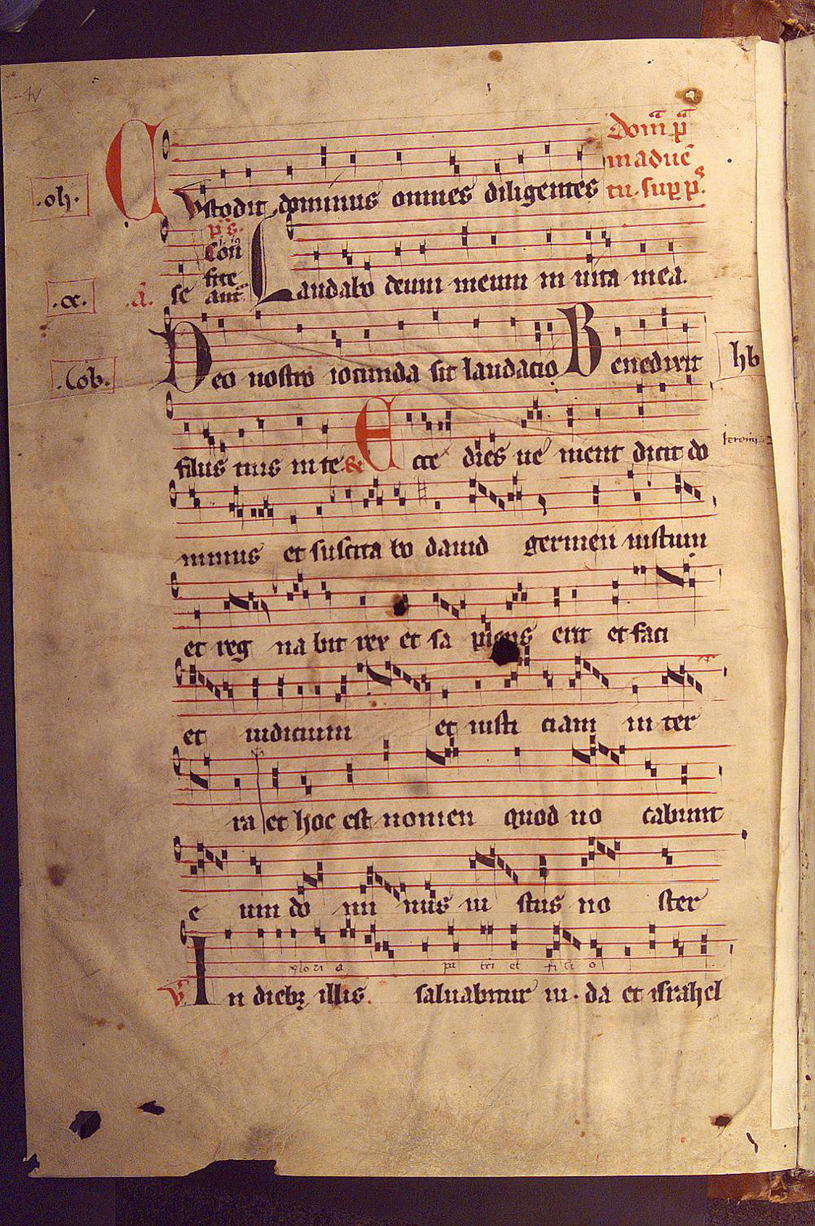 domīca p̄
Custodit dominus omnes diligentes
maduē
tu. sup p̄s.
.oh.
ps.
Con
fite
ant.
se Laudabo deum meum in uita mea.
.oe.
Deo nostro iocunda sit laudacio Benedixit
.Cob.
hb
filiis tuis in te. Ecce dies ue nient dicit do
minus et suscita bo dauid germen iustum
et reg na bit rex et sa piens erit et faci
et iudicium et iusti ciam in ter
ra et hoc est nomen quod uo cabunt
e um do mi nus iu stus no ster
glori a pa tri et fi li o
In dieb; illis. saluabitur iu. da et israhel